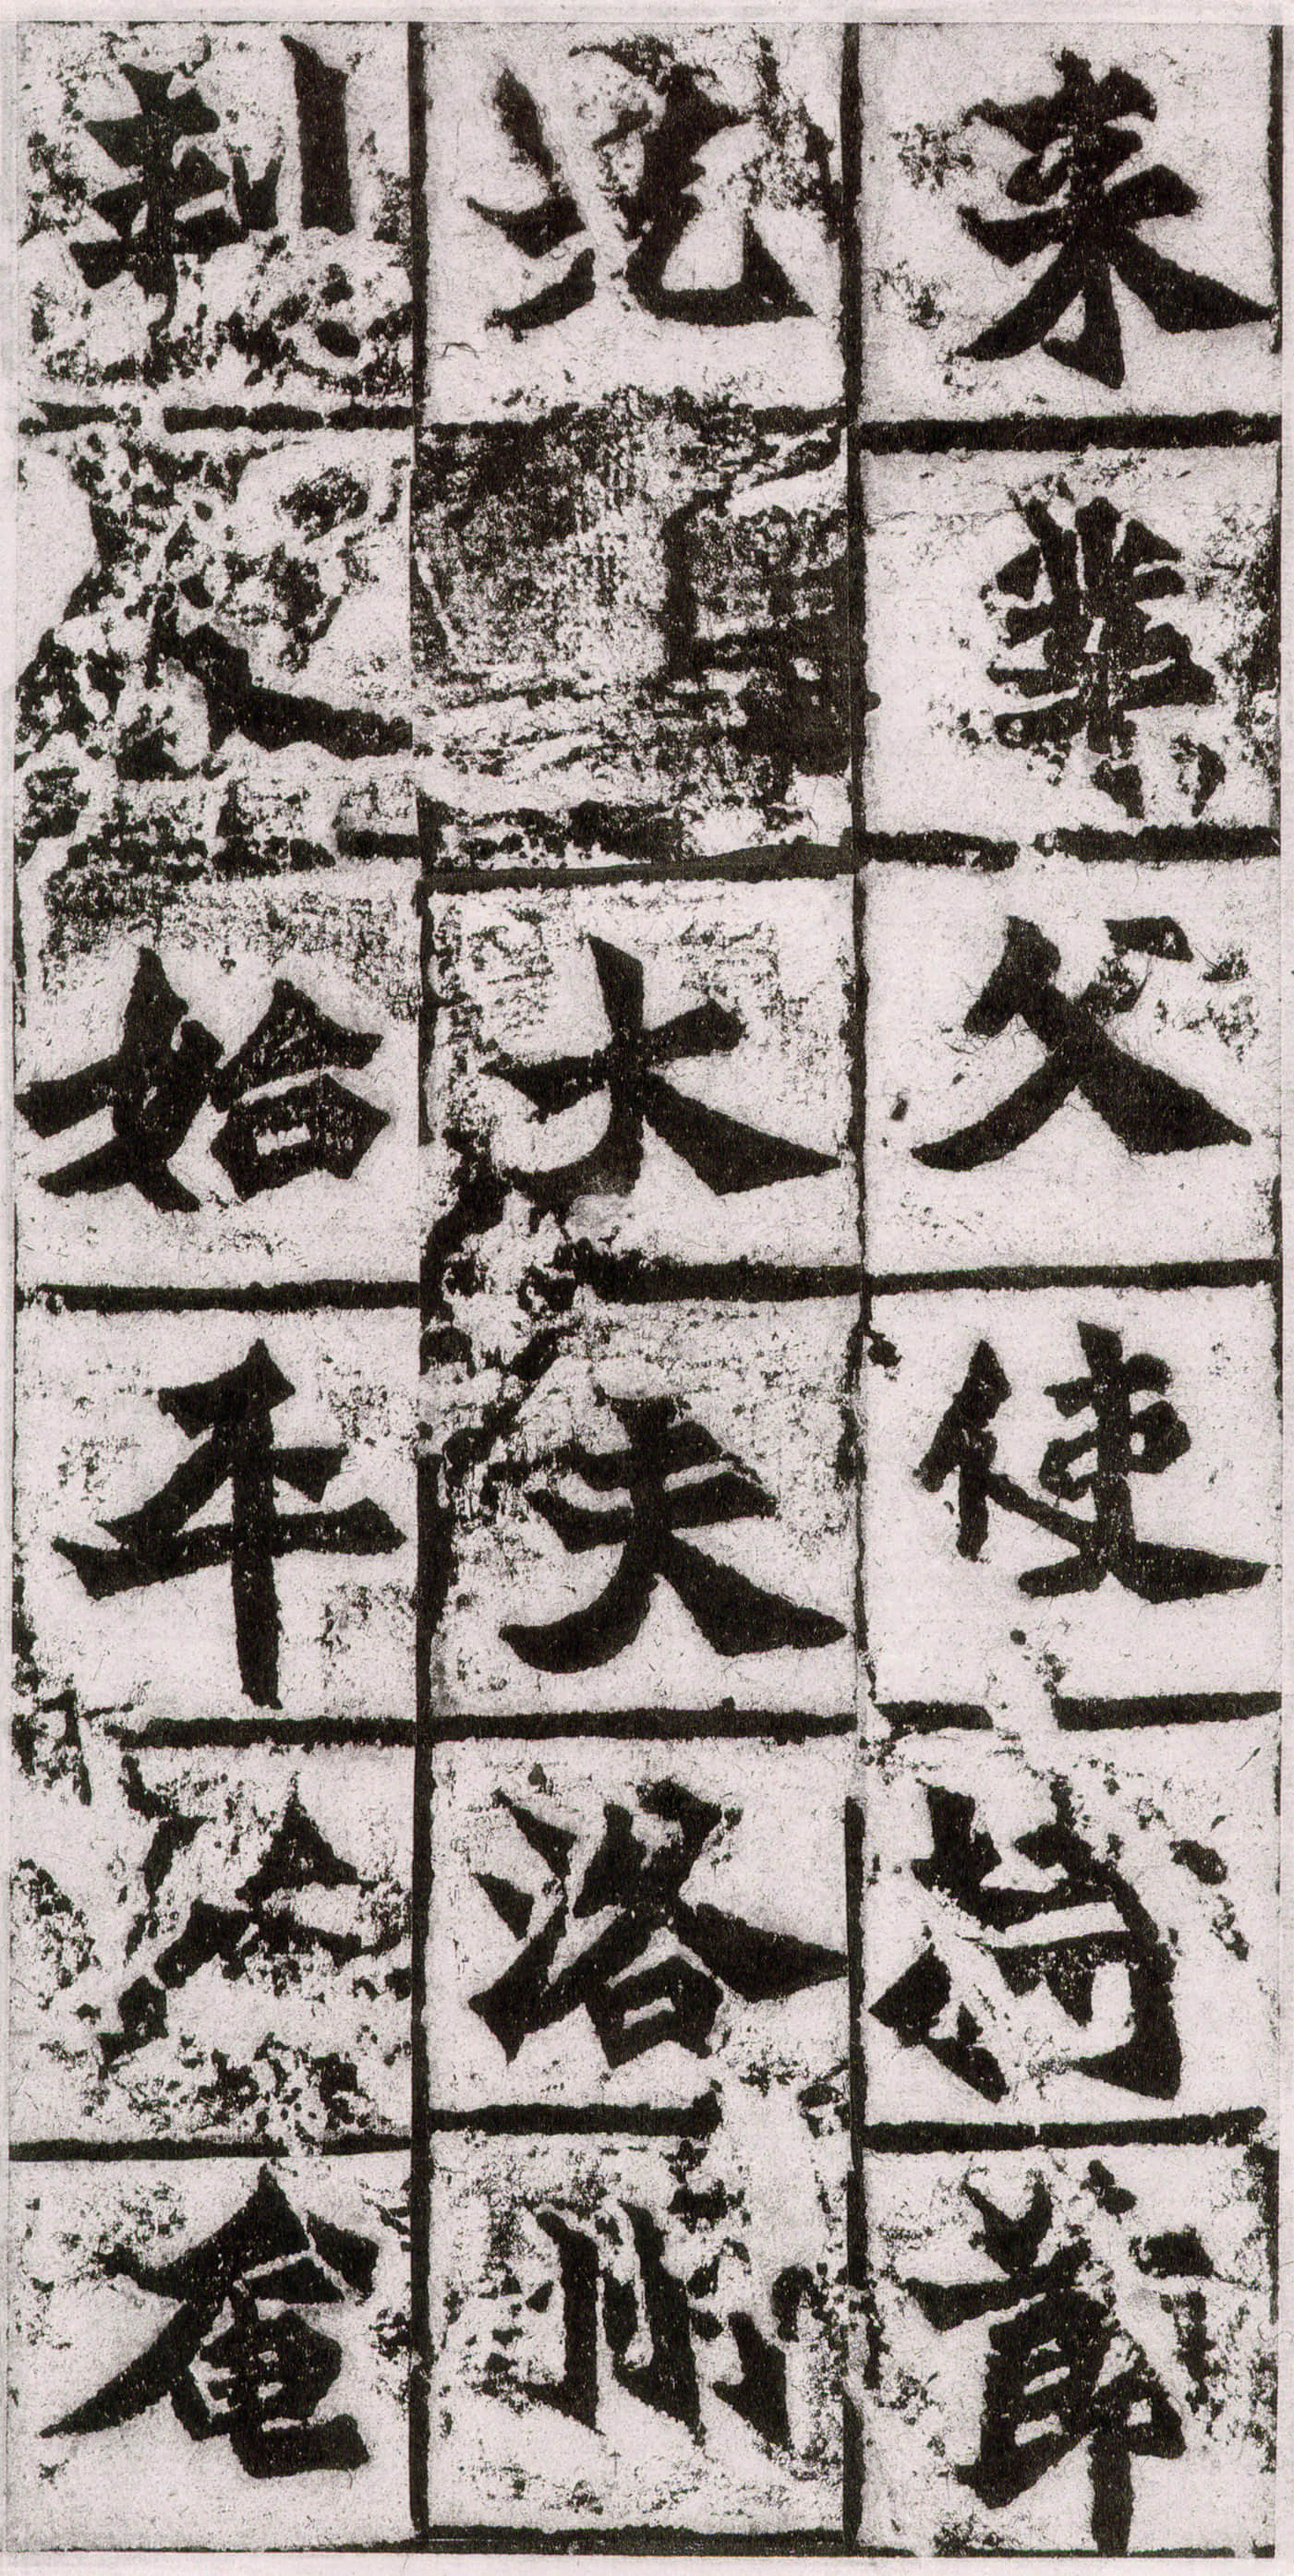 来輩父使持節
光大夫洛州
刺史始平公奄